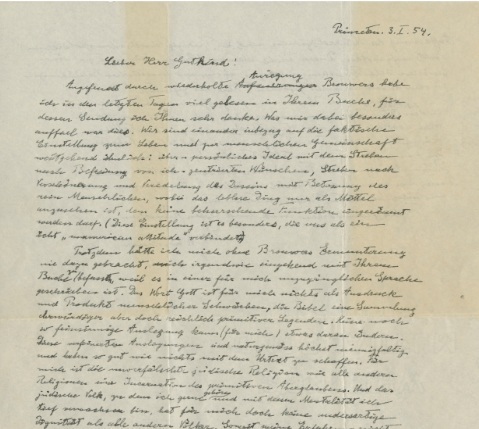 Princeton. 3. I. 54.
Lieber Herr Gutkind!
Anregung
Angefeuert durch wiederholte Brouwers habe
ich in den letzten Tagen viel gelesen in Ihrem Buche, für
dessen Sendung ich Ihnen sehr danke. Was mir dabei besonders
auffiel war dies. Wir sind einander inbezug auf die faktische
Einstellung zum Leben und zur menschlichen Gemeinschaft
weitgehend ähnlich: über-persönliches Ideal mit dem Streben
nach Befreiung von ich-zentrierten Wünschen, Streben nach
Verschönerung und Veredelung des Daseins mit Betonung des
rein Menschlichen, wobei das leblose Ding nur als Mittel
anzusehen ist, dem keine beherrschende Funktion eingeräumt
werden darf. (Diese Einstellung ist es besonders, die uns als ein
echt „unamerican attitude" verbindet)
Trotzdem hätte ich mich ohne Brouwers Ermunterung
nie dazu gebracht, mich irgendwie eingehend mit Ihrem
Buche zu befassen, weil es in einer für mich unzugänglichen Sprache
geschrieben ist. Das Wort Gott ist für mich nichts als Ausdruck
und Produkt menschlicher Schwächen, die Bibel eine Sammlung
ehrwürdiger aber doch reichlich primitiver Legenden. Keine noch
so feinsinnige Auslegung kann (für mich) etwas daran ändern.
Diese verfeinerten Auslegungen sind naturgemäss höchst mannigfaltig
und haben so gut wie nichts mit dem Urtext zu schaffen. Für
mich ist die unverfälschte jüdische Religion wie alle anderen
Religionen eine Incarnation des primitiven Aberglaubens. Und das
jüdische Volk, zu dem ich gerne gehöre und mit dessen Mentalität ich
tief verwachsen bin, hat für mich doch keine andersartige
Dignität als alle anderen Völker. Soweit meine Erfahrung reicht